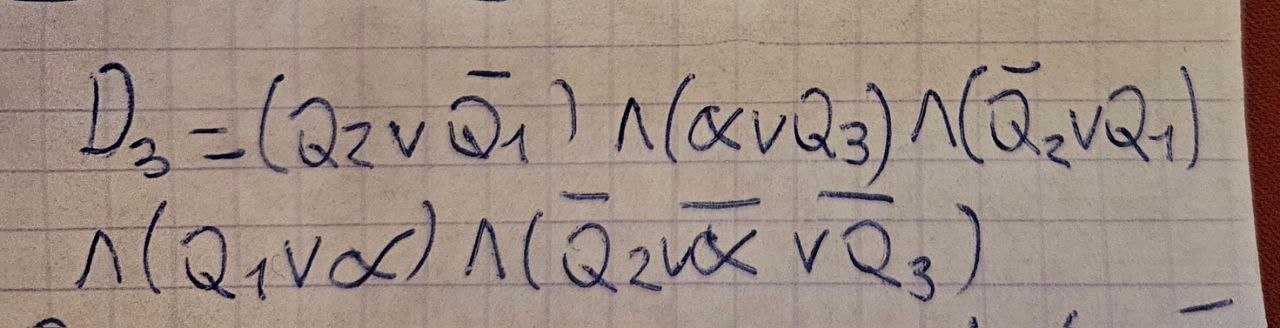 D₃ = (Q₂ ∨ Q̅₁) ∧ (α ∨ Q₃) ∧ (Q̅₂ ∨ Q₁)
∧ (Q₁ ∨ α) ∧ (Q̅₂ ∨ α̅ ∨ Q̅₃)